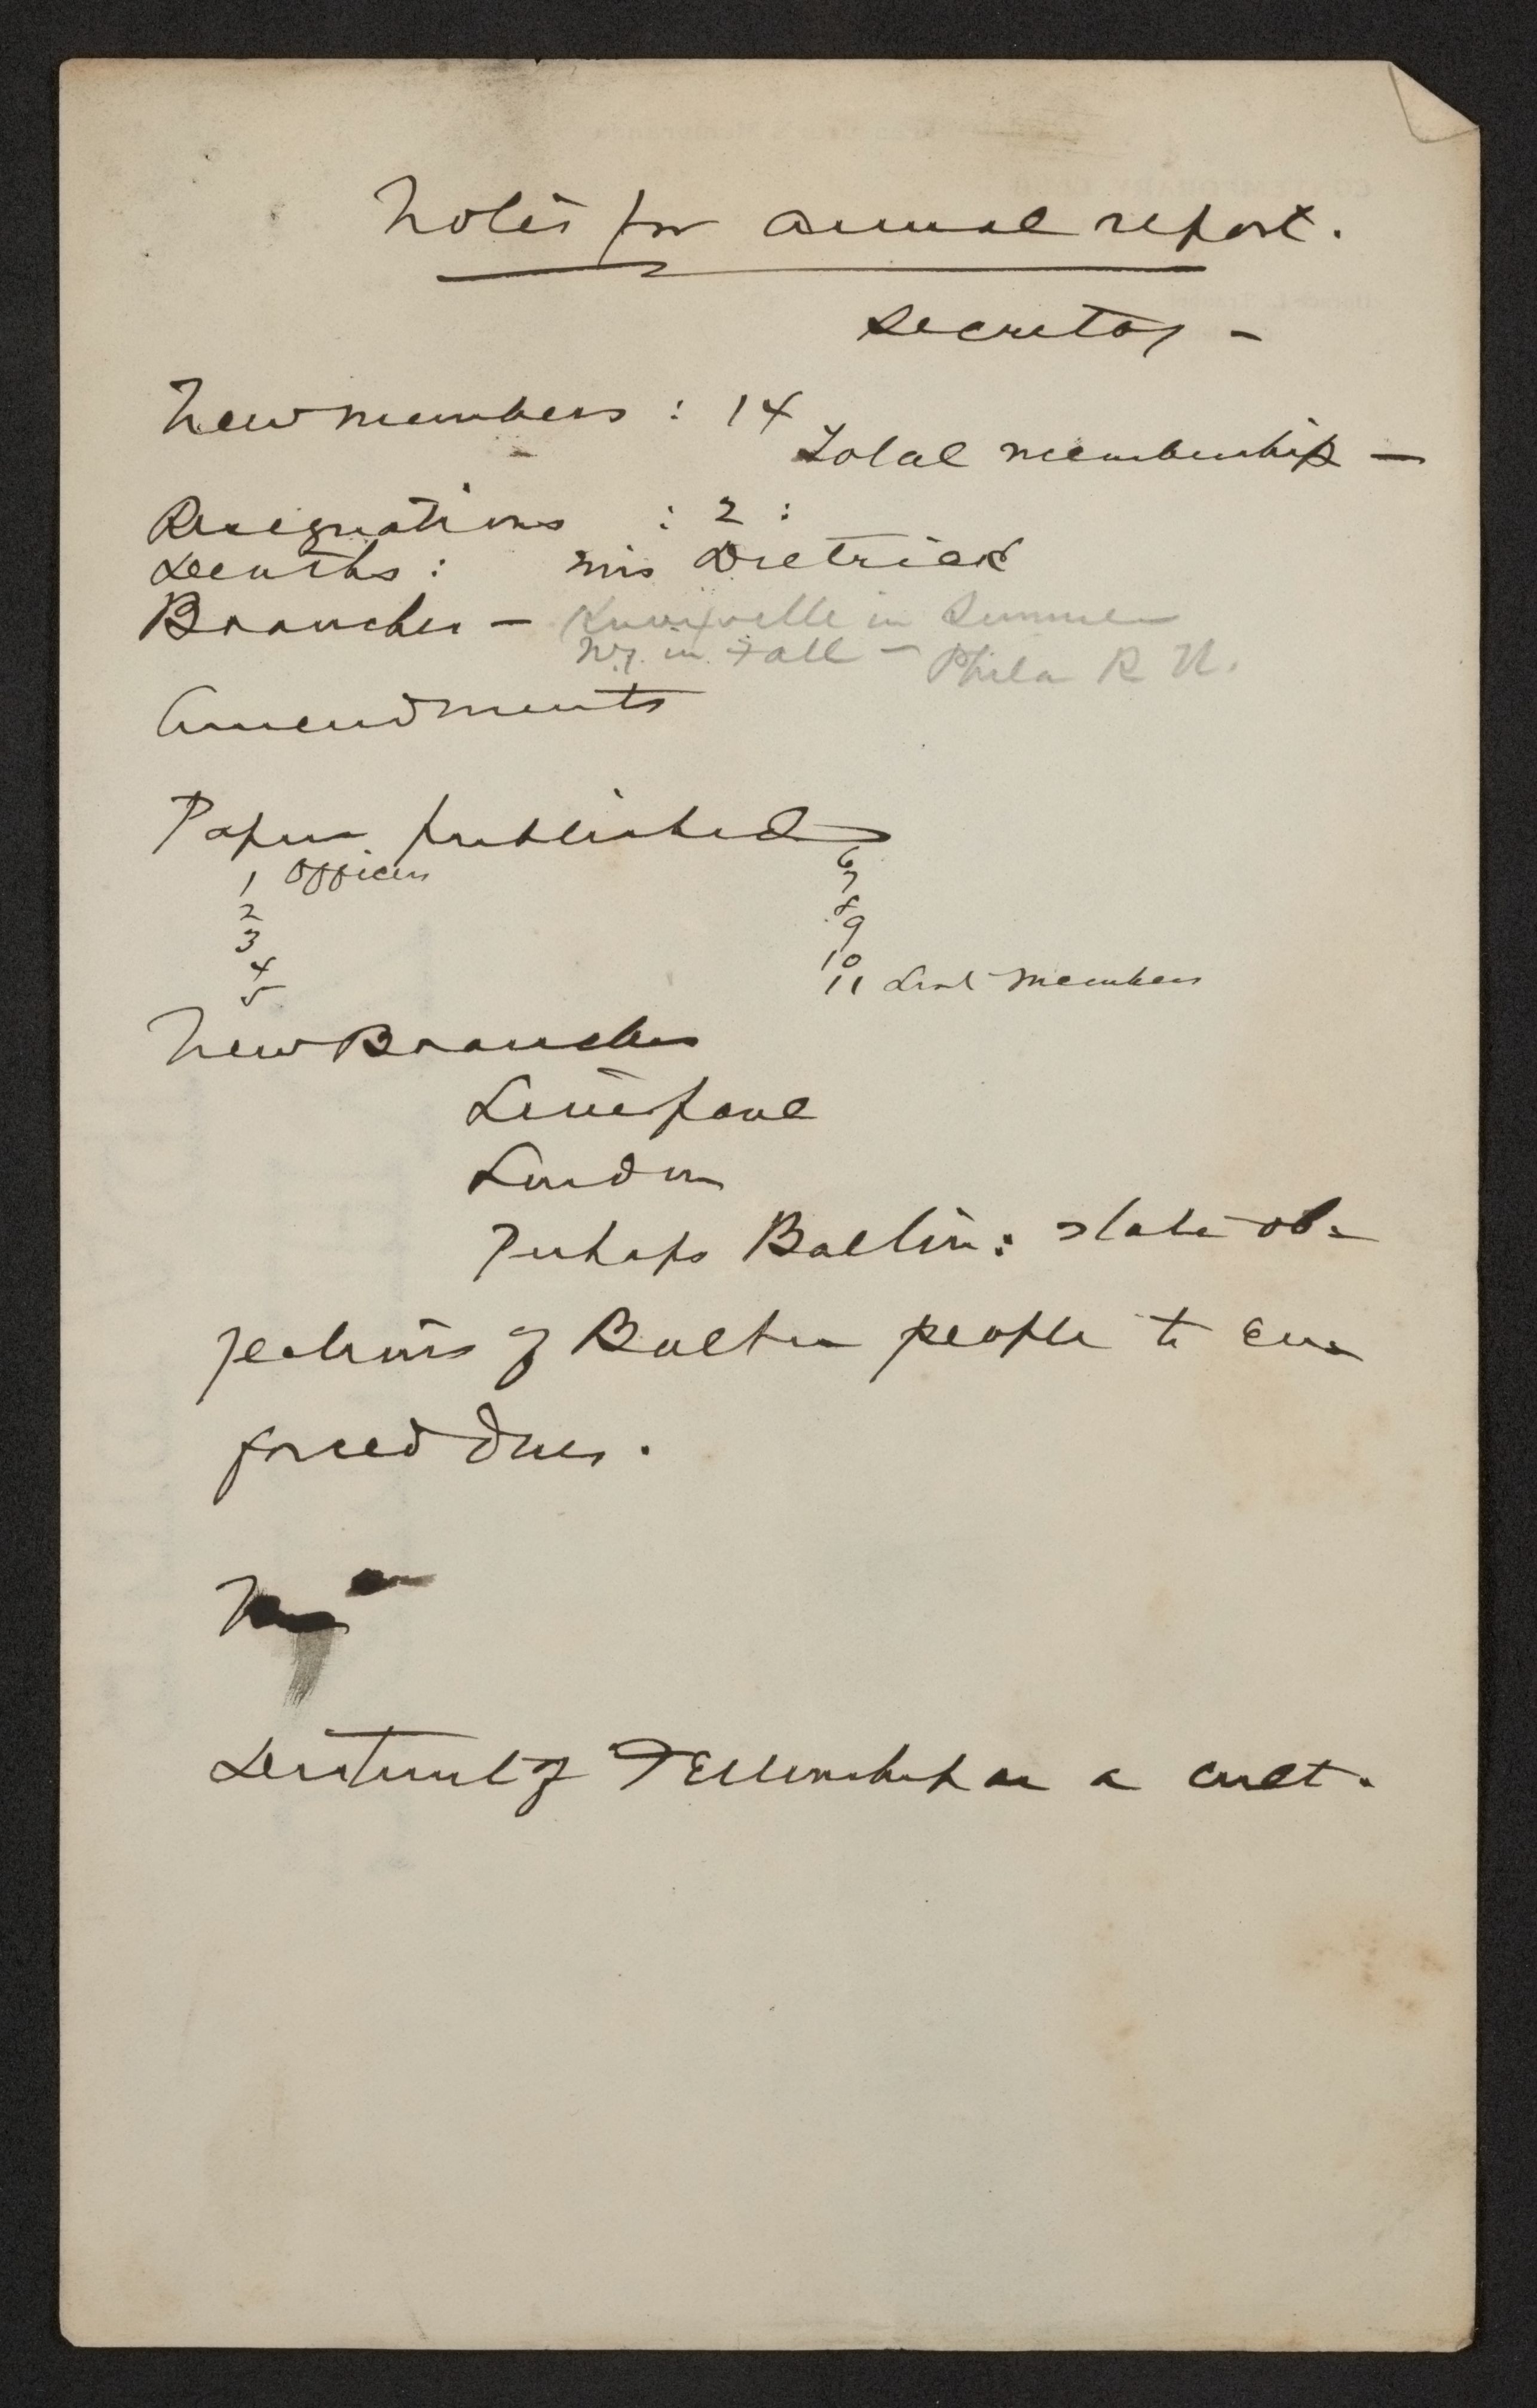 Notes for annual report.
Secretary –
New members : 14
Total membership –
Resignations : 2 :
Deaths : Mrs Dietrick
Branches – Knoxville in Summer
N.Y. in Fall – Phila R U.
Amendments
Papers published
1 Officers
2
3
4
5
6
7
8
9
10
11 List members
New Branches
London
Perhaps Bolton : state ob=
jections of Bolton people to en=
forced dues.
of Fellowship as a cult.